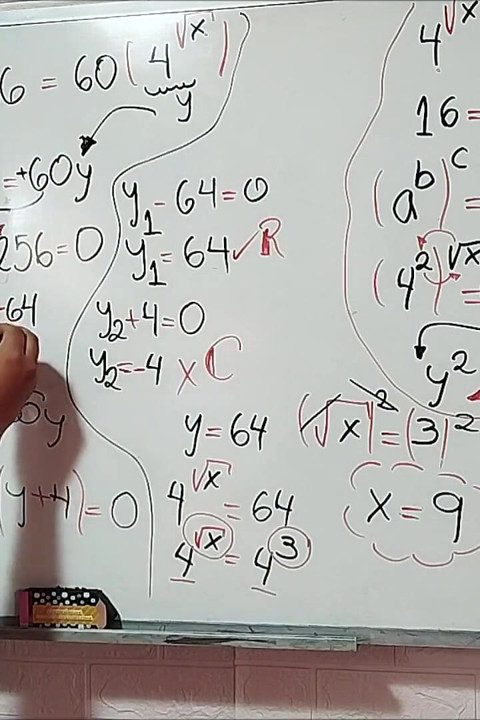 6 = 60(4^√x)
y
=+60y
256=0
-64
y
(y+4)=0
y₁-64=0
y₁=64✓R
y₂+4=0
y₂=-4 x C
y=64
4^√x = 64
4^√x = 4^3
4^√x
16=
(a^b)^c =
(4^2)^√x =
y^2
(√x)^2=(3)^2
x=9